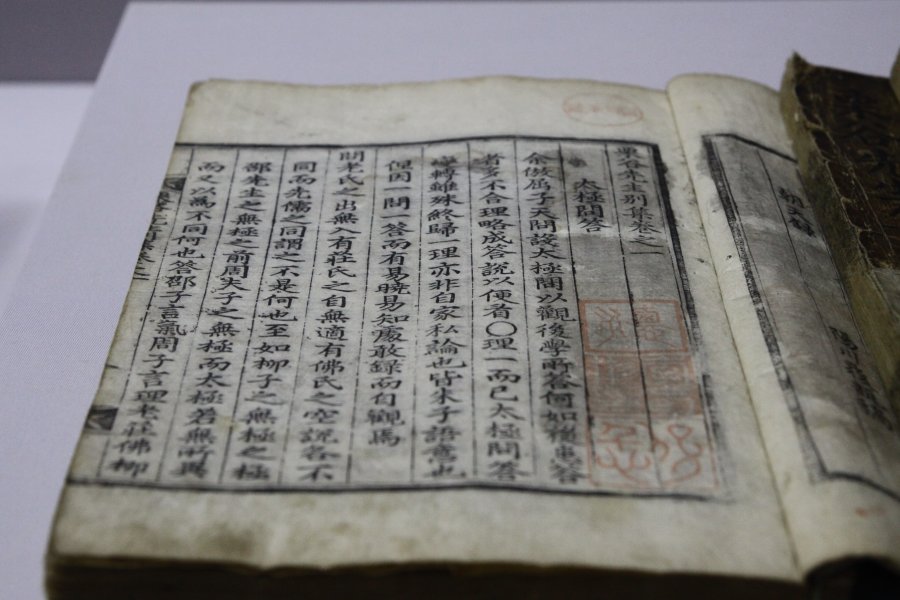 栗谷先生別集卷之一
太極問答
余倣屈子天問設太極問以觀後學所答何如後患答
者多不合理略成答說以便者〇理一而已太極問答
變轉雖殊終歸一理亦非自家私論也皆朱子語意也
但因一問一答而有易曉易知處敢錄而自觀焉
問老氏之出無入有莊氏之自無適有佛氏之空說各不
同而先儒之同謂之不是何也至如柳子之無極之極
邵先生之無極之前周夫子之無極而太極若無所異
而又以爲不同何也答邵子言氣周子言理老莊佛柳